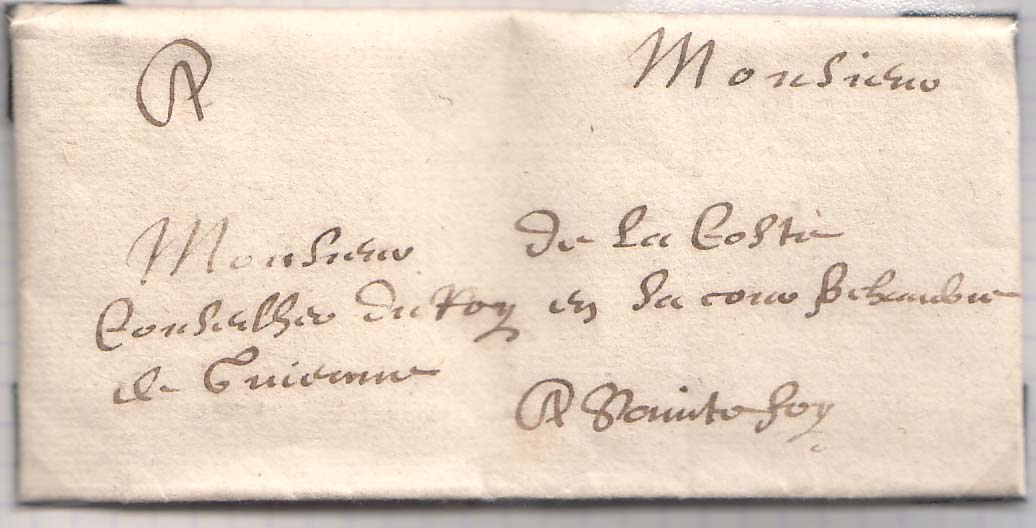 A Monsieur
Monsieur de la Coste
Conseilher du Roy en sa cour & chambre
de Guienne
A Sainte foy